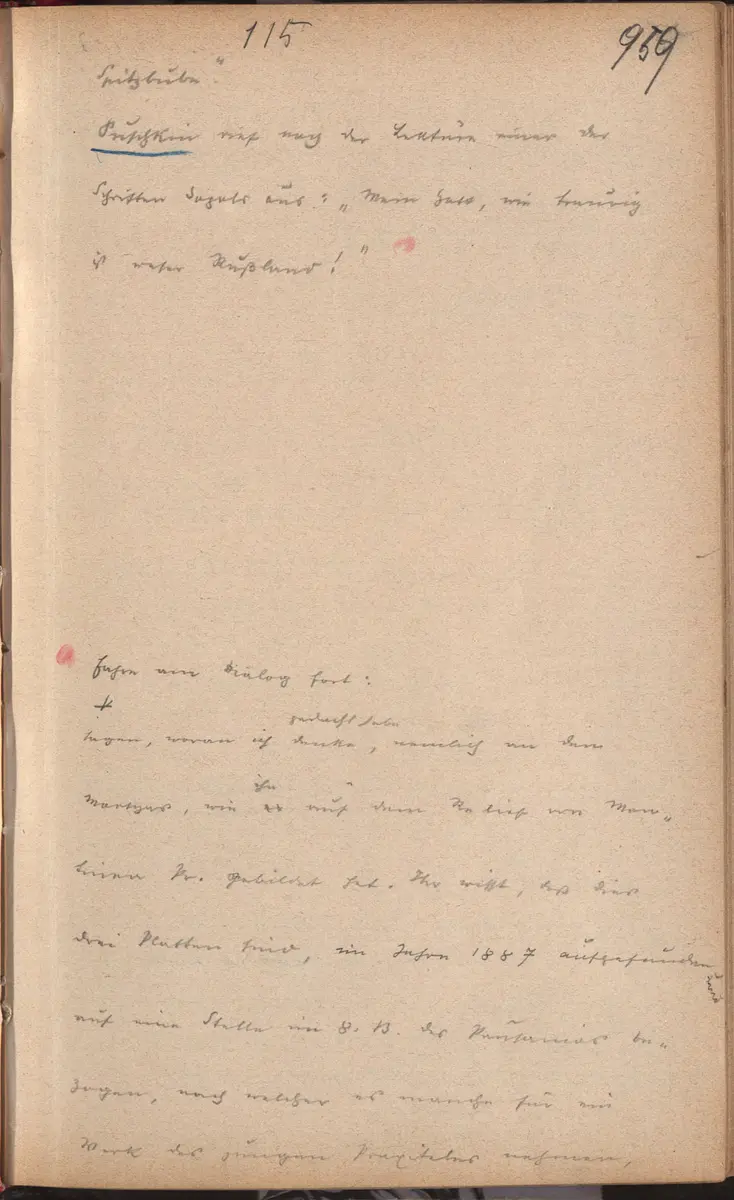 115
959
Spitzbube."
Puschkin rief nach der Lektüre einer der
Schriften Gogols aus: „Mein Gott, wie traurig
ist unser Rußland!"
Fahre am Dialog fort:
sagen, woran ich denke, nemlich an den
gedacht habe
Marsyas, wie er auf dem Relief von Man„
ihn
tinea Pr. gebildet hat. Ihr wißt, daß dies
drei Platten sind, im Jahre 1887 aufgefunden
auf eine Stelle im 8. B. des Pausanias be„
zogen, nach welcher es manche für ein
Werk des jungen Praxiteles nehmen,